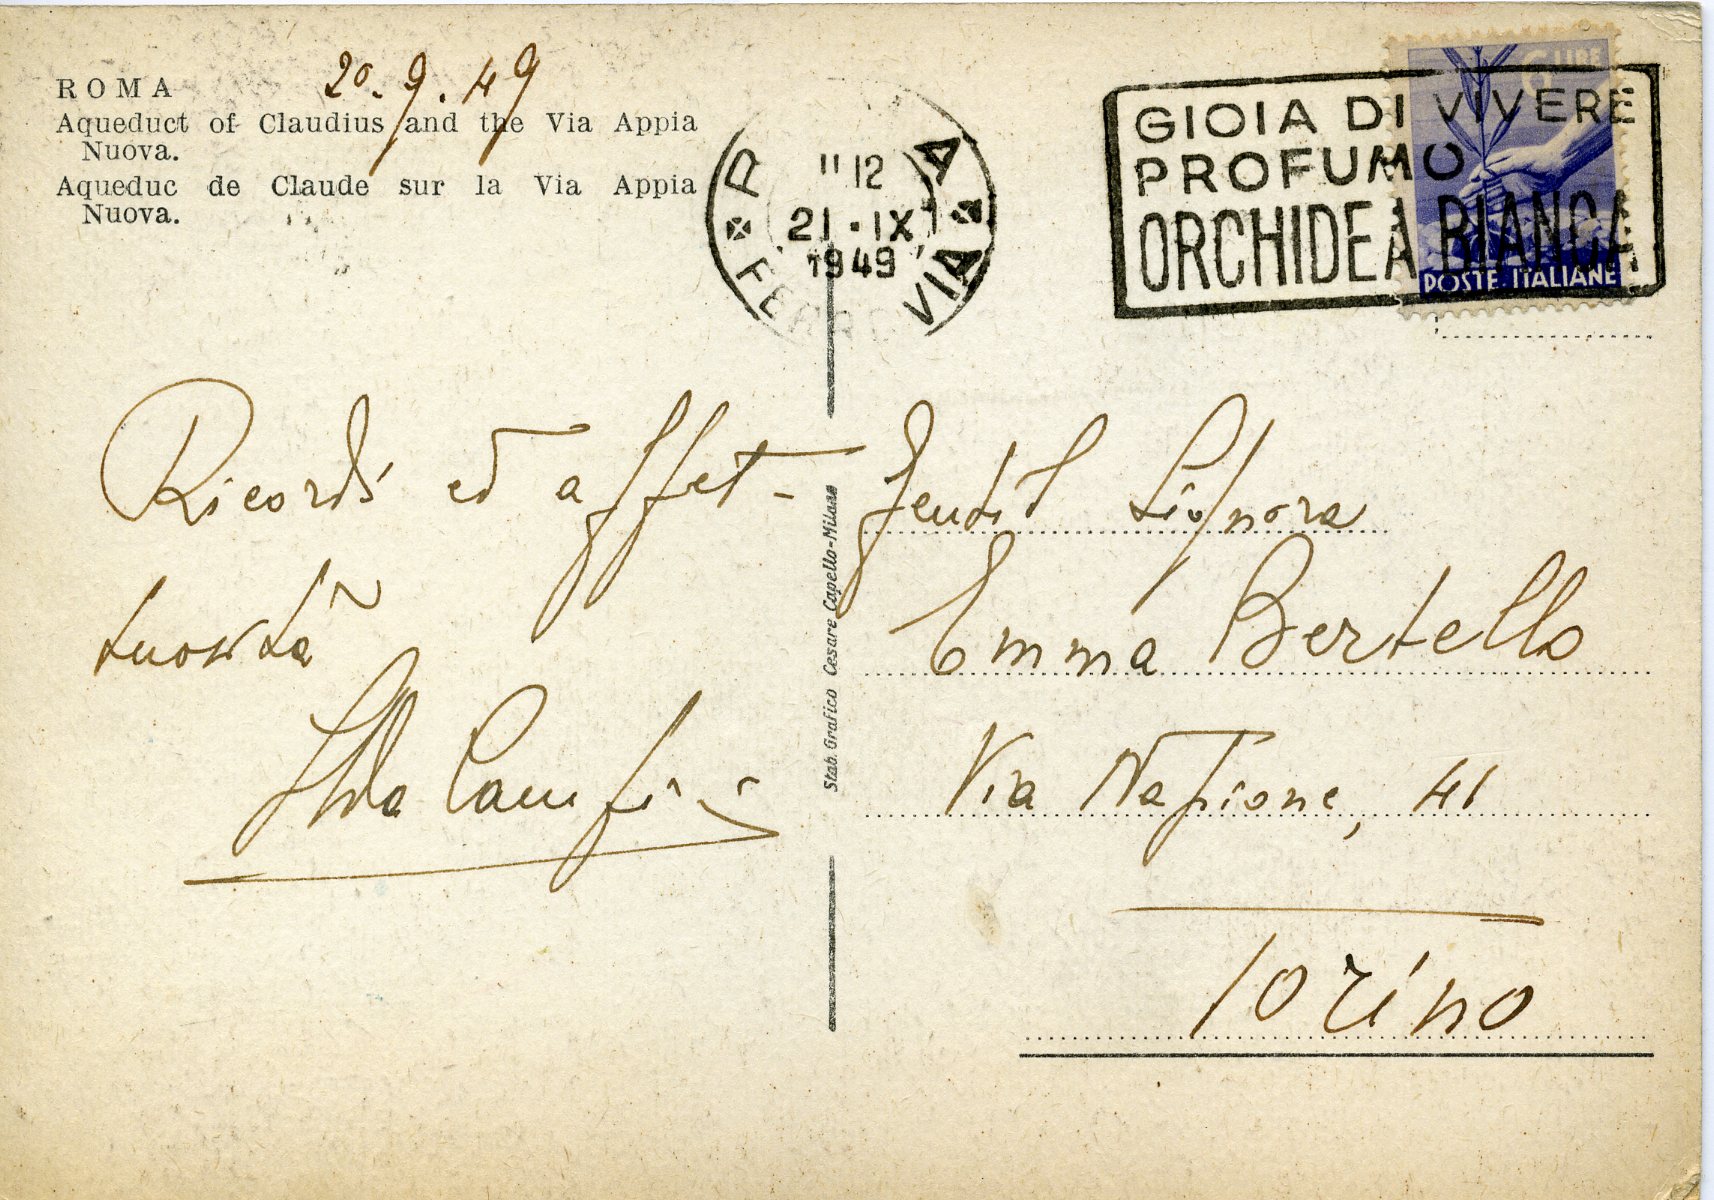 ROMA
20.9.49
Aqueduct of Claudius and the Via Appia
Nuova.
Aqueduc de Claude sur la Via Appia
Nuova.
11 12
21 · IX
1949
FERROVIA
GIOIA DI VIVERE
PROFUMO
ORCHIDEA BIANCA
6 LIRE
POSTE ITALIANE
Ricordi ed affet-
tuosità
Stab. Grafico Cesare Capello-Milano
Gentil Signora
Emma Bertello
Via Nazione, 41
Torino